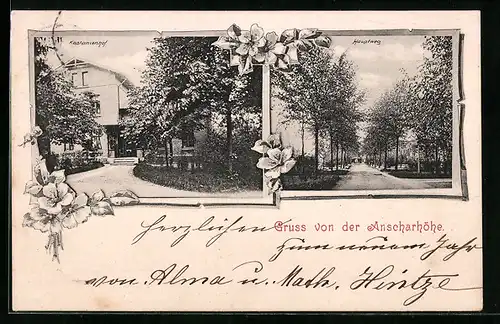 Kastanienhof
Hauptweg
herzlichen Gruss von der Anscharhöhe.
zum neuem Jahr
von Alma u. Math. Hintze